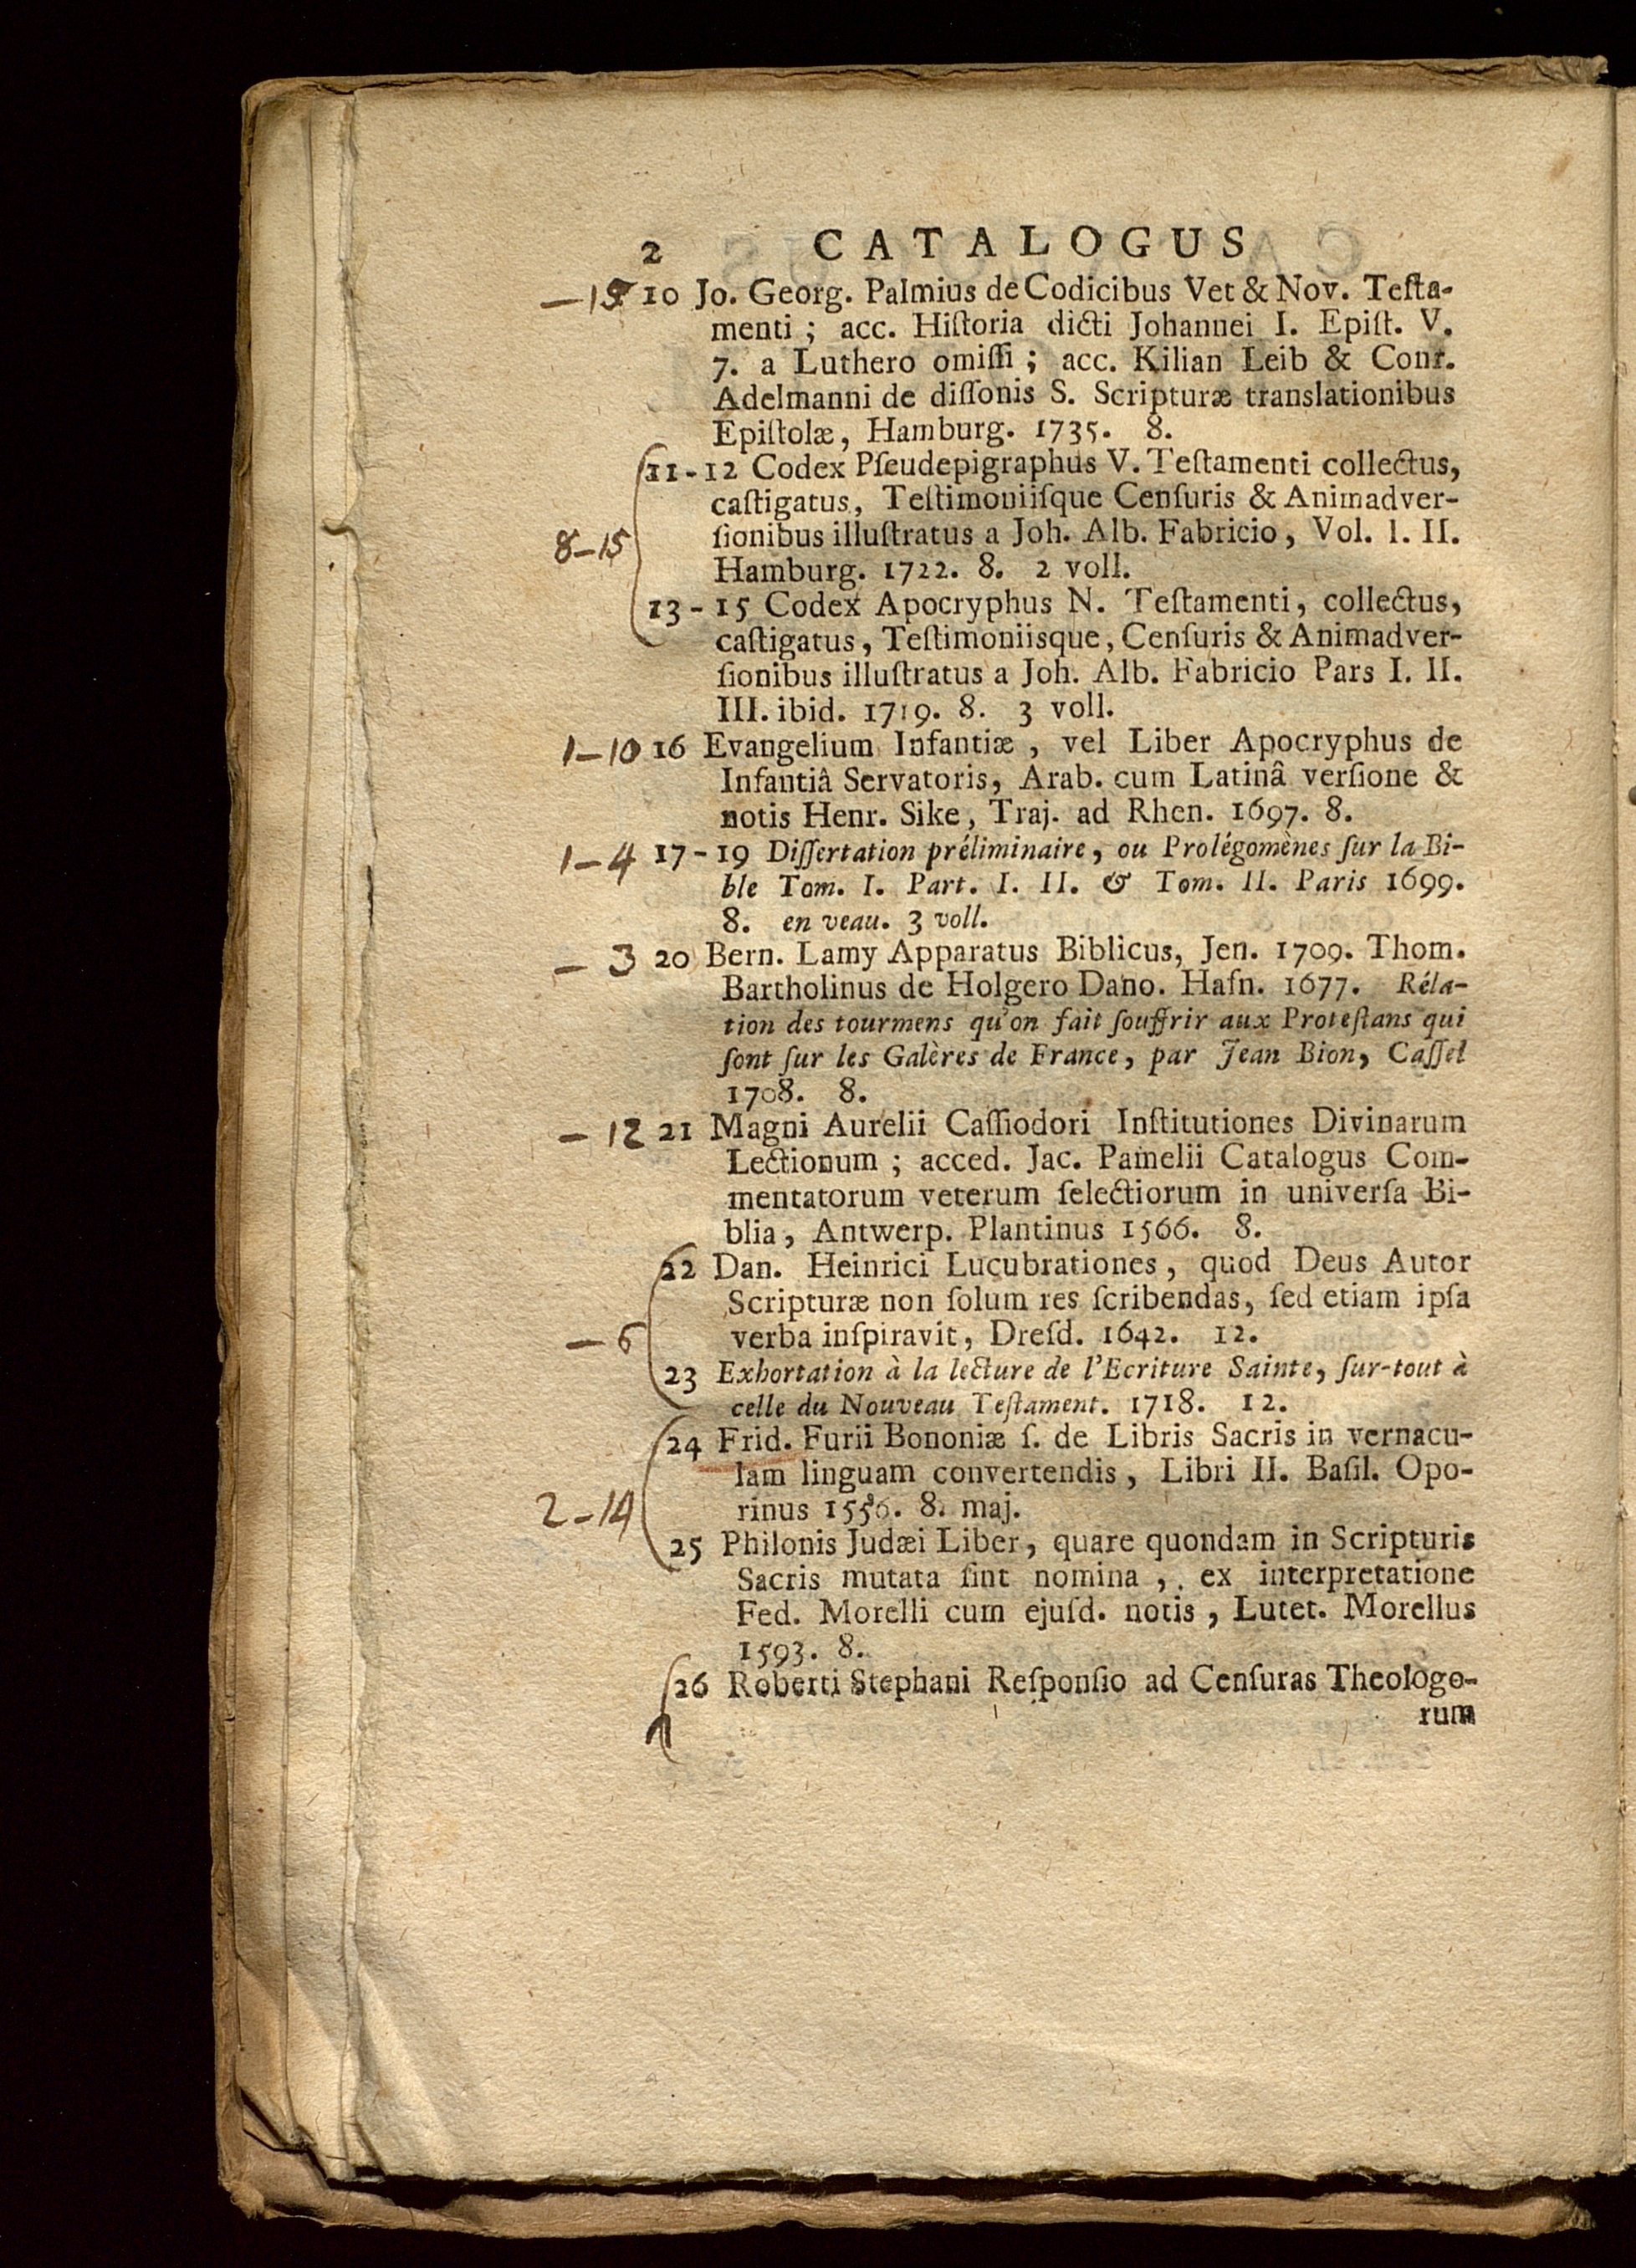 2 CATALOGUS
—15 10 Jo. Georg. Palmius de Codicibus Vet & Nov. Teſta-
menti ; acc. Hiſtoria dicti Johannei I. Epiſt. V.
7. a Luthero omiſſi ; acc. Kilian Leib & Conr.
Adelmanni de diſſonis S. Scripturæ translationibus
Epiſtolæ, Hamburg. 1735. 8.
11-12 Codex Pſeudepigraphus V. Teſtamenti collectus,
caſtigatus, Teſtimoniiſque Cenſuris & Animadver-
8-15 ſionibus illuſtratus a Joh. Alb. Fabricio, Vol. I. II.
Hamburg. 1722. 8. 2 voll.
13-15 Codex Apocryphus N. Teſtamenti, collectus,
caſtigatus, Teſtimoniisque, Cenſuris & Animadver-
ſionibus illuſtratus a Joh. Alb. Fabricio Pars I. II.
III. ibid. 1719. 8. 3 voll.
1-10 16 Evangelium Infantiæ, vel Liber Apocryphus de
Infantiâ Servatoris, Arab. cum Latinâ verſione &
notis Henr. Sike, Traj. ad Rhen. 1697. 8.
1-4 17-19 Diſſertation préliminaire, ou Prolégomènes ſur la Bi-
ble Tom. I. Part. I. II. & Tom. II. Paris 1699.
8. en veau. 3 voll.
— 3 20 Bern. Lamy Apparatus Biblicus, Jen. 1709. Thom.
Bartholinus de Holgero Dano. Hafn. 1677. Réla-
tion des tourmens qu'on fait ſouffrir aux Proteſtans qui
ſont ſur les Galères de France, par Jean Bion, Caſſel
1708. 8.
— 12 21 Magni Aurelii Caſſiodori Inſtitutiones Divinarum
Lectionum ; acced. Jac. Pamelii Catalogus Com-
mentatorum veterum ſelectiorum in univerſa Bi-
blia, Antwerp. Plantinus 1566. 8.
22 Dan. Heinrici Lucubrationes, quod Deus Autor
Scripturæ non ſolum res ſcribendas, ſed etiam ipſa
— 6 verba inſpiravit, Dreſd. 1642. 12.
23 Exhortation à la lecture de l'Ecriture Sainte, ſur-tout à
celle du Nouveau Teſtament. 1718. 12.
24 Frid. Furii Bononiæ ſ. de Libris Sacris in vernacu-
lam linguam convertendis, Libri II. Baſil. Opo-
2-14 rinus 1556. 8. maj.
25 Philonis Judæi Liber, quare quondam in Scripturis
Sacris mutata ſint nomina, ex interpretatione
Fed. Morelli cum ejuſd. notis, Lutet. Morellus
1593. 8.
26 Roberti Stephani Reſponſio ad Cenſuras Theologo-
rum